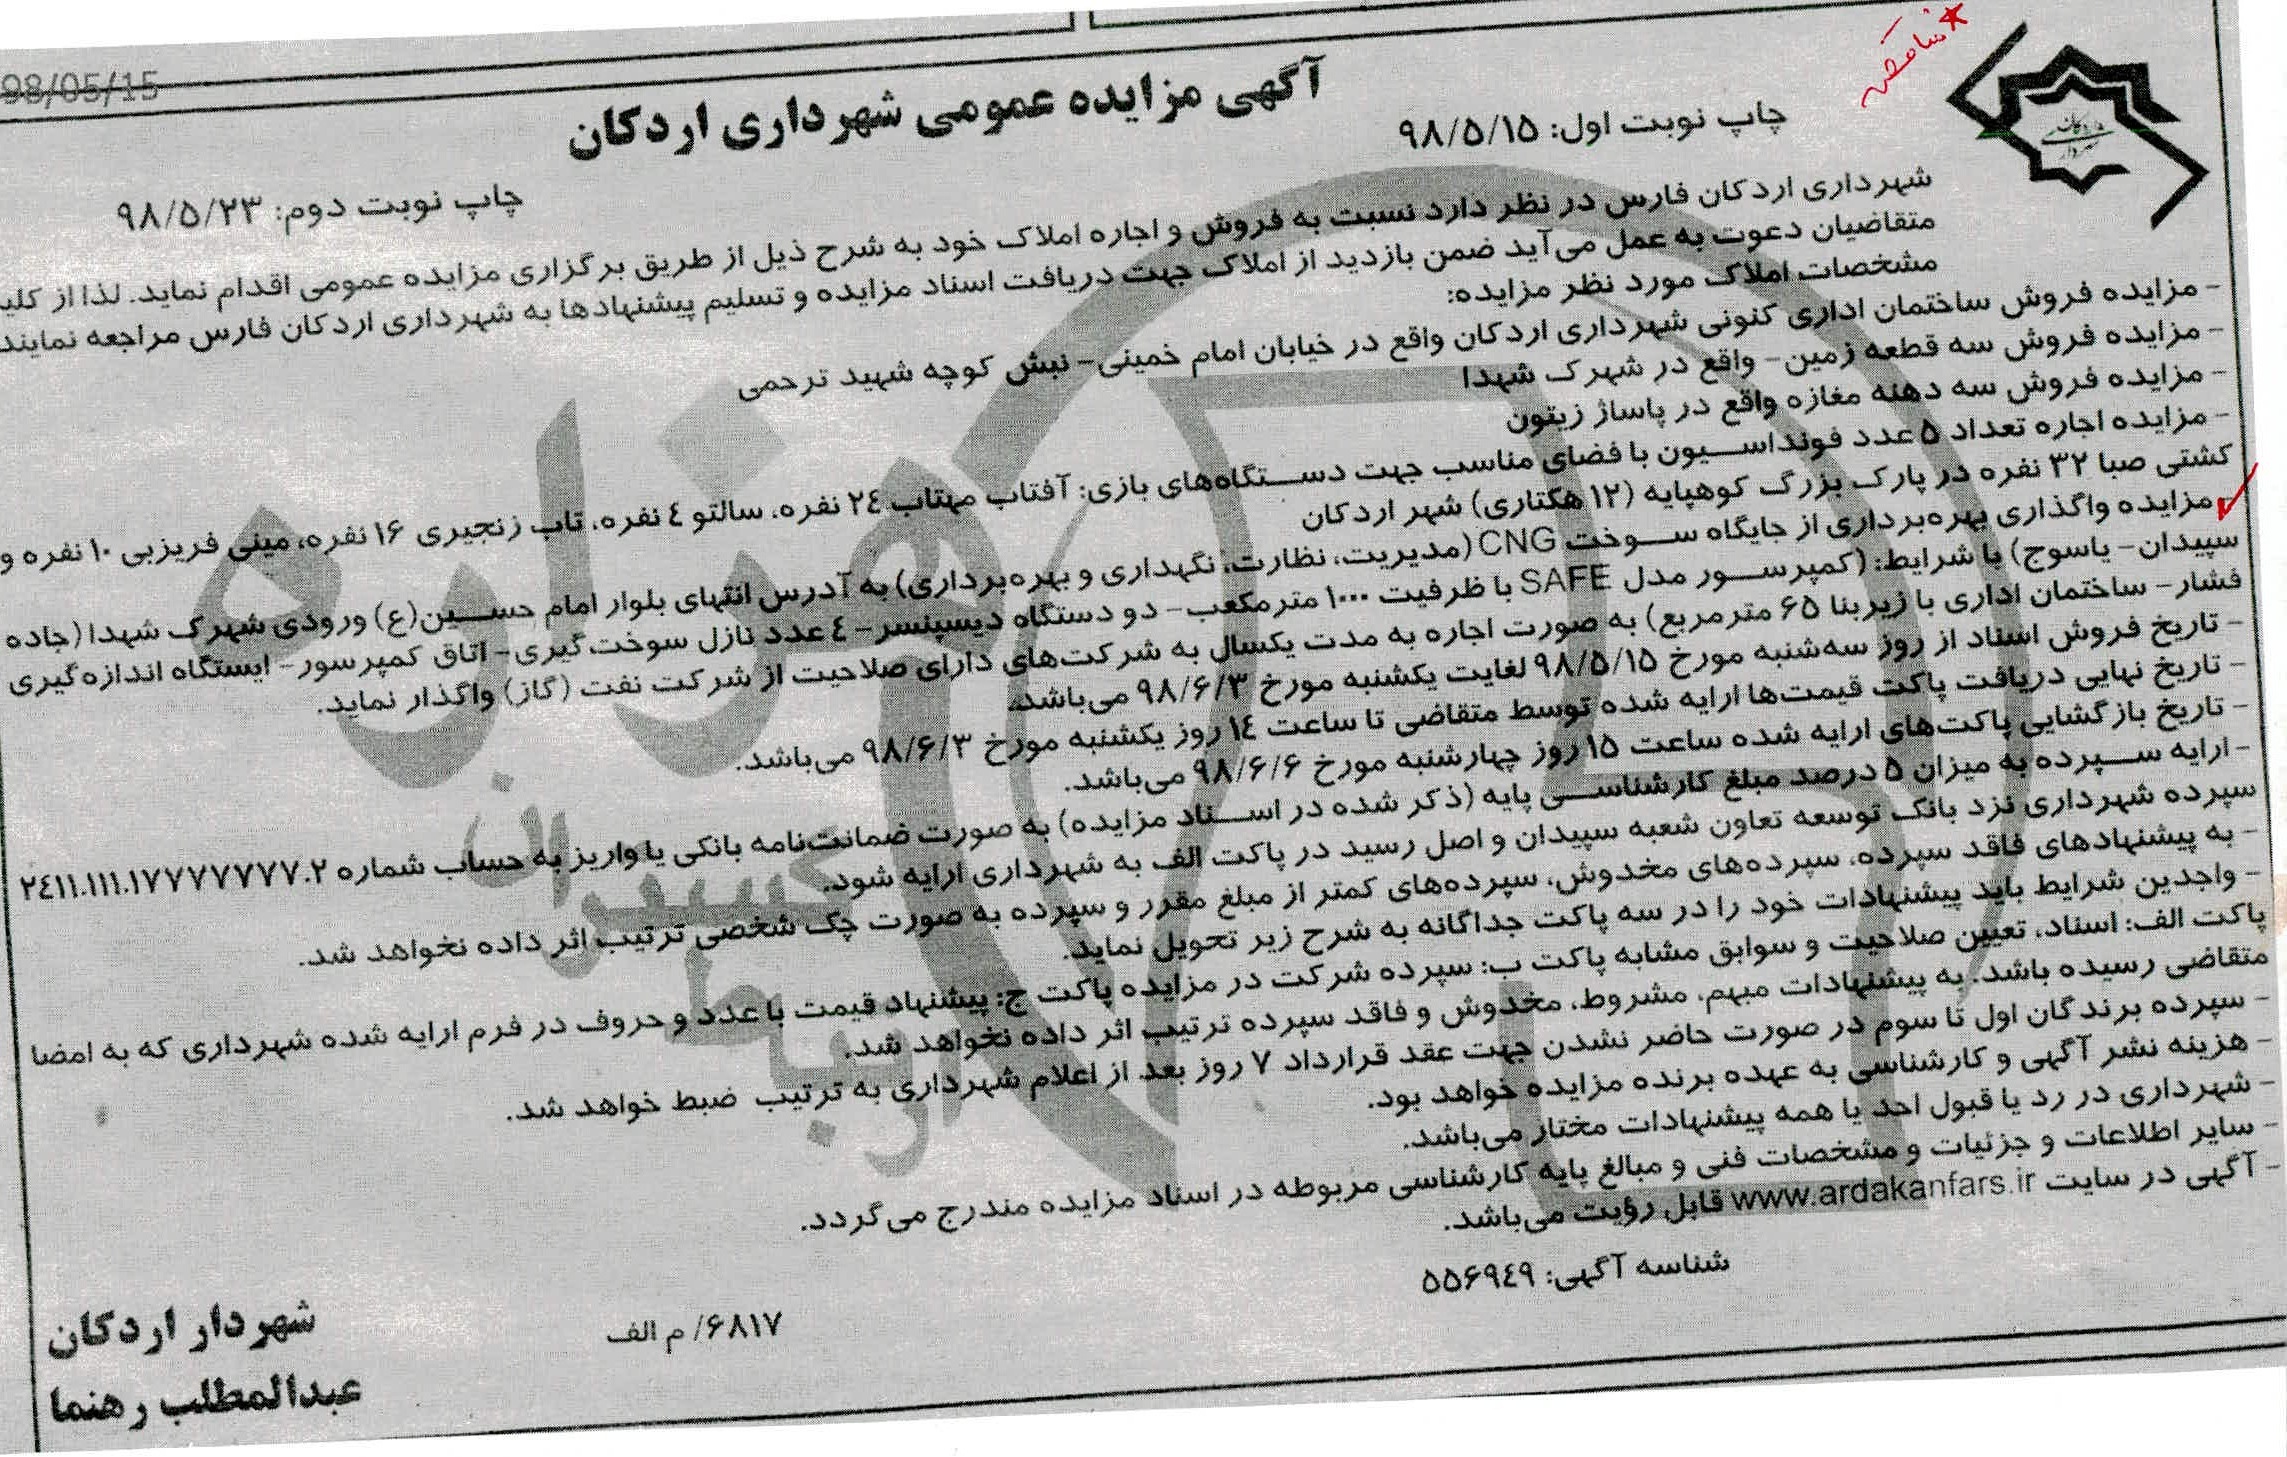 98/05/15
آگهی مزایده عمومی شهرداری اردکان
چاپ نوبت اول: ۹۸/۵/۱۵
چاپ نوبت دوم: ۹۸/۵/۲۳
شهرداری اردکان فارس در نظر دارد نسبت به فروش و اجاره املاک خود به شرح ذیل از طریق برگزاری مزایده عمومی اقدام نماید. لذا از کلیه
متقاضیان دعوت به عمل می‌آید ضمن بازدید از املاک جهت دریافت اسناد مزایده و تسلیم پیشنهادها به شهرداری اردکان فارس مراجعه نمایند
مشخصات املاک مورد نظر مزایده:
- مزایده فروش ساختمان اداری کنونی شهرداری اردکان واقع در خیابان امام خمینی- نبش کوچه شهید ترحمی
- مزایده فروش سه قطعه زمین- واقع در شهرک شهدا
- مزایده فروش سه دهنه مغازه واقع در پاساژ زیتون
- مزایده اجاره تعداد ۵ عدد فونداسیون با فضای مناسب جهت دستگاه‌های بازی: آفتاب مهتاب ۲٤ نفره، سالتو ٤ نفره، تاب زنجیری ۱۶ نفره، مینی فریزبی ۱۰ نفره و
کشتی صبا ۳۲ نفره در پارک بزرگ کوهپایه (۱۲ هکتاری) شهر اردکان
- مزایده واگذاری بهره‌برداری از جایگاه سوخت CNG (مدیریت، نظارت، نگهداری و بهره‌برداری) به آدرس انتهای بلوار امام حسین(ع) ورودی شهرک شهدا (جاده
سپیدان- یاسوج) با شرایط: (کمپرسور مدل SAFE با ظرفیت ۱۰۰۰ مترمکعب- دو دستگاه دیسپنسر- ٤ عدد نازل سوخت‌گیری- اتاق کمپرسور- ایستگاه اندازه‌گیری
فشار- ساختمان اداری با زیربنا ۶۵ مترمربع) به صورت اجاره به مدت یکسال به شرکت‌های دارای صلاحیت از شرکت نفت (گاز) واگذار نماید.
- تاریخ فروش اسناد از روز سه‌شنبه مورخ ۹۸/۵/۱۵ لغایت یکشنبه مورخ ۹۸/۶/۳ می‌باشد.
- تاریخ نهایی دریافت پاکت قیمت‌ها ارایه شده توسط متقاضی تا ساعت ۱٤ روز یکشنبه مورخ ۹۸/۶/۳ می‌باشد.
- تاریخ بازگشایی پاکت‌های ارایه شده ساعت ۱۵ روز چهارشنبه مورخ ۹۸/۶/۶ می‌باشد.
- ارایه سپرده به میزان ۵ درصد مبلغ کارشناسی پایه (ذکر شده در اسناد مزایده) به صورت ضمانت‌نامه بانکی یا واریز به حساب شماره ۲٤۱۱.۱۱۱.۱۷۷۷۷۷۷۷.۲
سپرده شهرداری نزد بانک توسعه تعاون شعبه سپیدان و اصل رسید در پاکت الف به شهرداری ارایه شود.
- به پیشنهادهای فاقد سپرده، سپرده‌های مخدوش، سپرده‌های کمتر از مبلغ مقرر و سپرده به صورت چک شخصی ترتیب اثر داده نخواهد شد.
- واجدین شرایط باید پیشنهادات خود را در سه پاکت جداگانه به شرح زیر تحویل نماید.
پاکت الف: اسناد، تعیین صلاحیت و سوابق مشابه پاکت ب: سپرده شرکت در مزایده پاکت ج: پیشنهاد قیمت با عدد و حروف در فرم ارایه شده شهرداری که به امضا
متقاضی رسیده باشد. به پیشنهادات مبهم، مشروط، مخدوش و فاقد سپرده ترتیب اثر داده نخواهد شد.
- سپرده برندگان اول تا سوم در صورت حاضر نشدن جهت عقد قرارداد ۷ روز بعد از اعلام شهرداری به ترتیب ضبط خواهد شد.
- هزینه نشر آگهی و کارشناسی به عهده برنده مزایده خواهد بود.
- شهرداری در رد یا قبول احد یا همه پیشنهادات مختار می‌باشد.
- سایر اطلاعات و جزئیات و مشخصات فنی و مبالغ پایه کارشناسی مربوطه در اسناد مزایده مندرج می‌گردد.
- آگهی در سایت www.ardakanfars.ir قابل رؤیت می‌باشد.
شناسه آگهی: ۵۵۶۹٤۹
۶۸۱۷/ م الف
شهردار اردکان
عبدالمطلب رهنما
هزاره